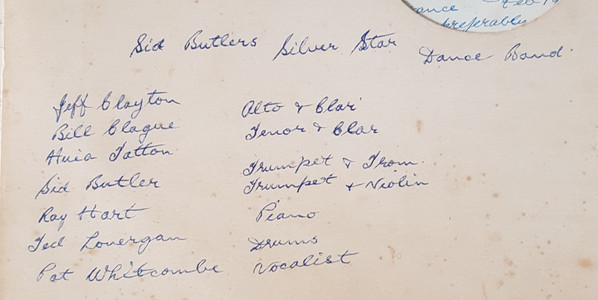 ance Feb 19
preferably
Sid Butlers Silver Star Dance Band.
Jeff Clayton Alto & Clar
Bill Clague Tenor & Clar
Huia Tatton Trumpet & Trom.
Sid Butler Trumpet + Violin
Ray Hart Piano
Ted Lonergan Drums
Pat Whitcombe Vocalist